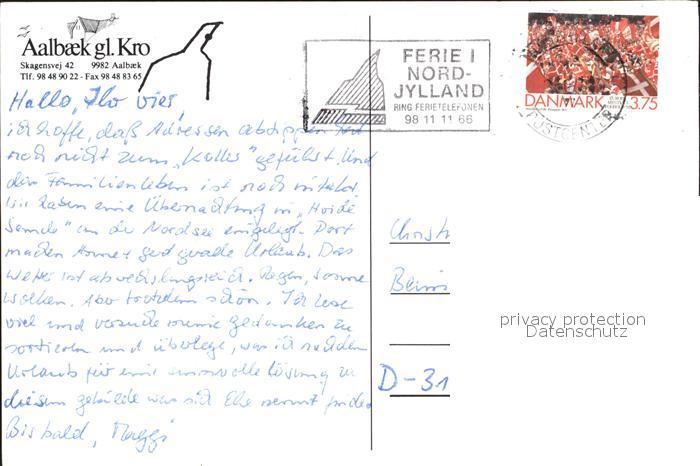 Aalbæk gl. Kro
Skagensvej 42 9982 Aalbæk
Tlf. 98 48 90 22 - Fax 98 48 83 65
FERIE I
NORD-
JYLLAND
RING FERIETELEFONEN
98 11 11 66
DANMARK 3.75
POSTCENTER
Hallo, Ihr vier,
ich hoffe, daß Adressen abtippen hat
noch nicht zum „Kollis" geführt. Und
das Familienleben ist noch intakt.
Wir haben eine Übernachtung in „Hvide
Sande" an der Nordsee eingelegt. Dort
machen Urlaub. Das
Wetter ist abwechslungsreich. Regen, Sonne
Wolken. Aber trotzdem schön. Ich lese
viel und versuche meine Gedanken zu
sortieren und überlege, was ich nach dem
Urlaub für eine sinnvolle Lösung zu
diesem gebilde was sich Ehe nennt finde.
Bis bald, Maggi
Christ
Bein
D-31
privacy protection
Datenschutz